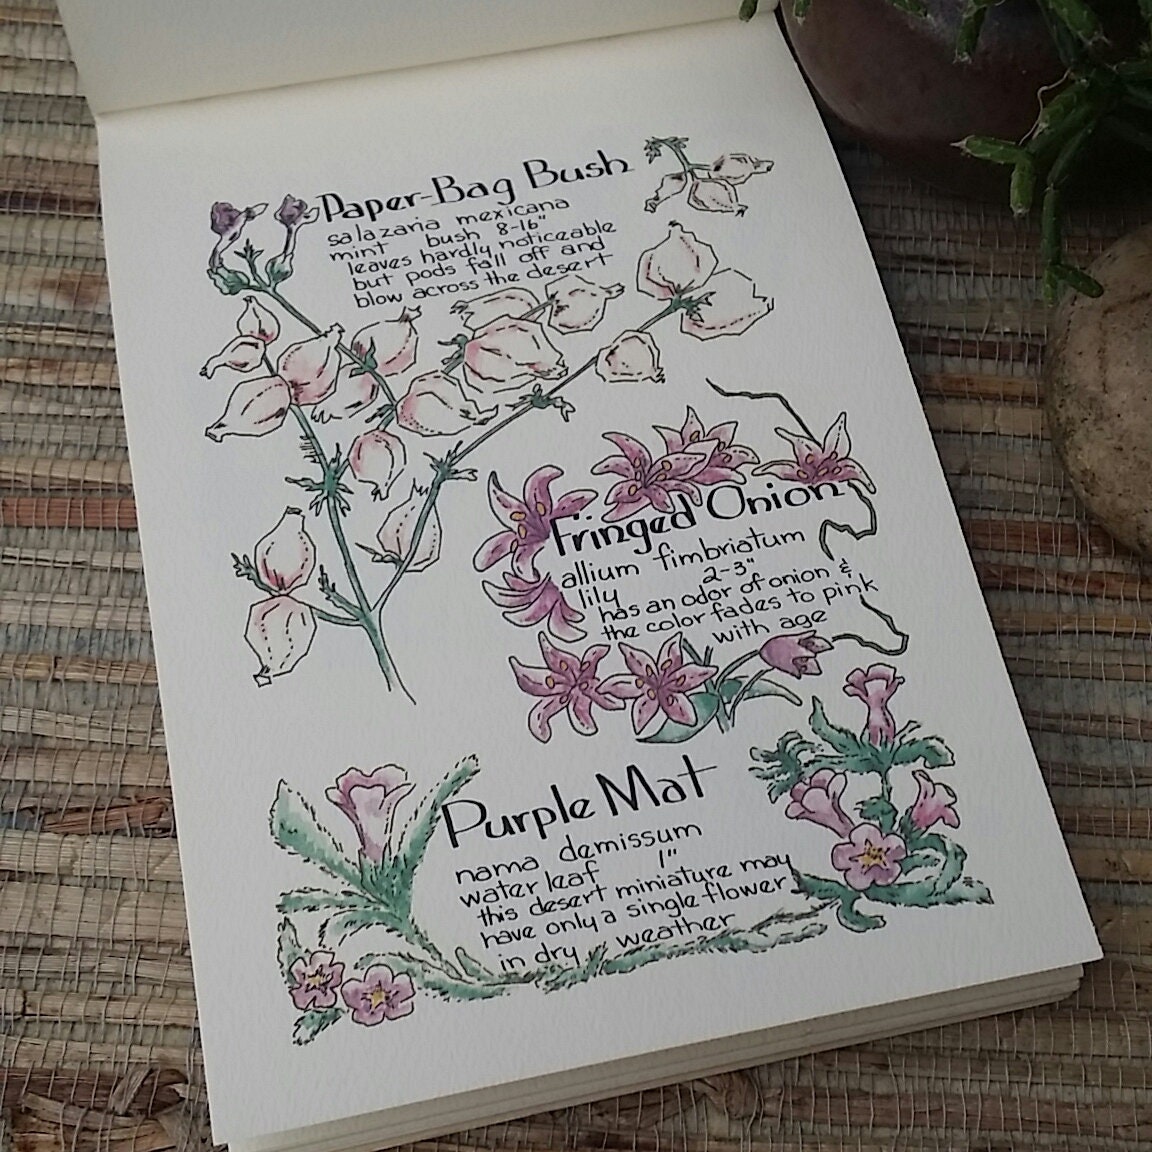 Paper-Bag Bush
salazaria mexicana
mint bush 8-16"
leaves hardly noticeable
but pods fall off and
blow across the desert
Fringed Onion
allium fimbriatum
lily 2-3"
has an odor of onion &
the color fades to pink
with age
Purple Mat
nama demissum
water leaf 1"
this desert miniature may
have only a single flower
in dry weather